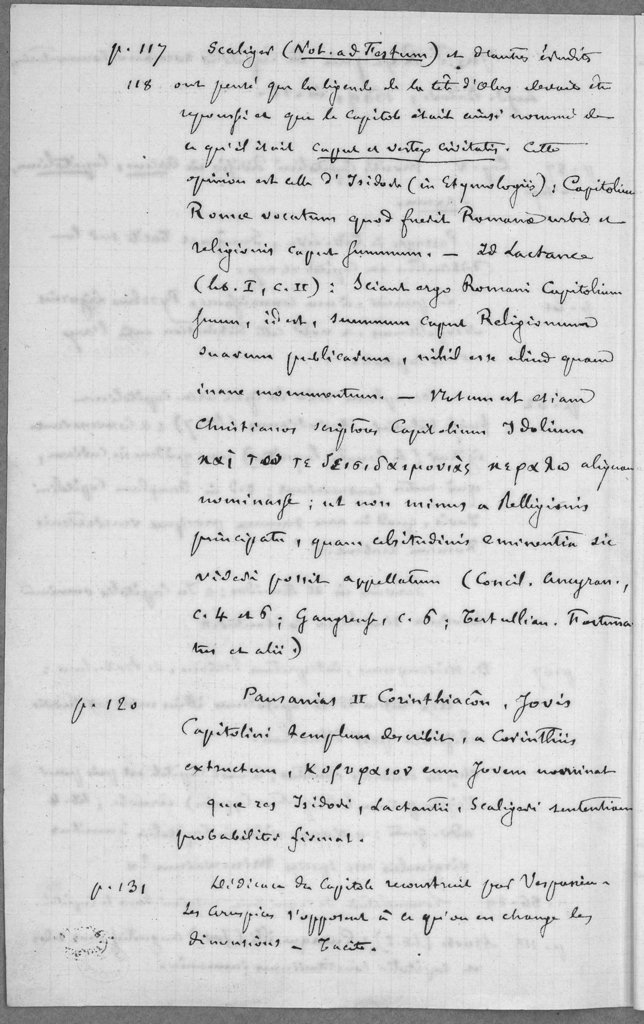 p. 117 Scaliger (Not. ad Festum) et d'autres érudits
118 ont pensé que la légende de la tête d'Olus devait être
repoussée et que le Capitole était ainsi nommé de
ce qu'il était caput et vertex civitatis. Cette
opinion est celle d'Isidore (in Etymologiis) : Capitolium
Romæ vocatum quod fuerit Romanæ urbis et
religionis caput summum. — Id Lactance
(lib. I, c. II) : Sciant ergo Romani Capitolium
suum, id est, summum caput Religionum
suarum publicarum, nihil esse aliud quam
inane monumentum. — Notum est etiam
Christianos scriptores Capitolium Idolium
καὶ τῶν τε δεισιδαιμονίας κεραλω aliquan
nominasse ; ut non minus a Relligionis
principatu, quam altitudinis eminentia sic
videri possit appellatum (Concil. Ancyran.,
c. 4 et 6 ; Gangrense, c. 6 ; Tertullian. Fortuna
tus et alii.)
p. 120 Pausanias II Corinthiacôn, Jovis
Capitolini templum describit, a Corinthiis
extructum, Κορυφαιον eum Jovem nominat
quæ res Isidori, Lactantii, Scaligeri sententiam
probabiliter firmat.
p. 131 Dédicace du Capitole reconstruit par Vespasien.
Les aruspices s'opposent à ce qu'on en change les
dimensions — Tacite.